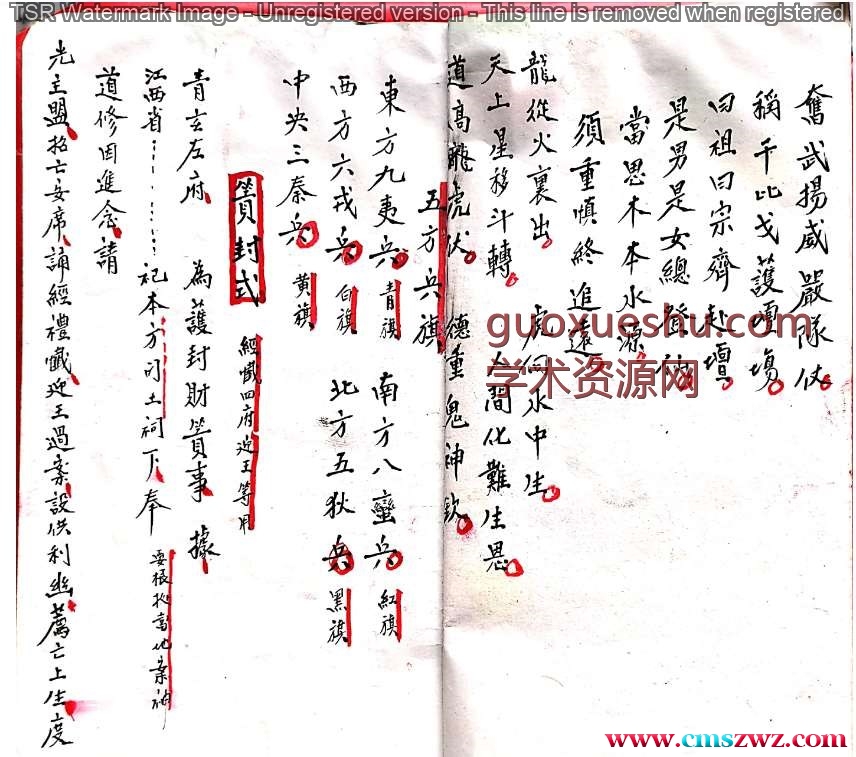 TSR Watermark Image - Unregistered version - This line is removed when registered
奮武揚威嚴隊仗
稱干比戈護壇場
曰祖曰宗齊赴壇
是男是女總登仙
當思木本水源
須重慎終追遠
龍從火裏出 虎向水中生
天上星移斗轉 人間化難生恩
道高龍虎伏 德重鬼神欽
五方兵旗
東方九夷兵 青旗 南方八蠻兵 紅旗
西方六戎兵 白旗 北方五狄兵 黑旗
中央三秦兵 黃旗
籄封式 經懺四府迎王等用
青玄左府 為護封財籄事 據
江西省 祀本方 土祠下奉
道修因進念請
光主盟招亡安席誦經禮懺迎王過案設供利幽薦亡上生度
guoxueshu.com
学术资源网
www.cmszwz.com